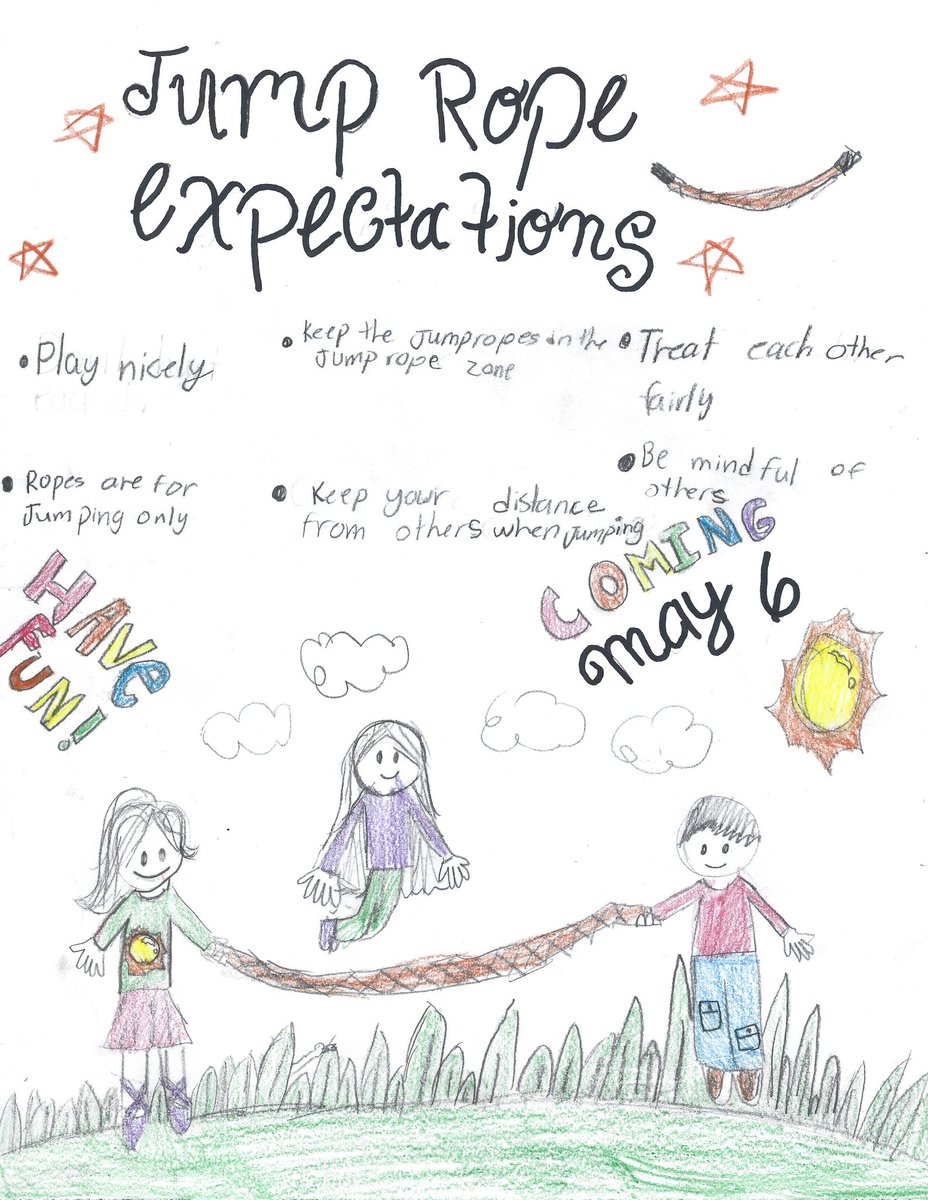 Jump Rope
expectations
• Play nicely
• Keep the Jumpropes in the
Jump rope zone
• Treat each other
fairly
• Ropes are for
Jumping only
• Keep your distance
from others when jumping
• Be mindful of
others
HAVE
FUN!
COMING
may 6